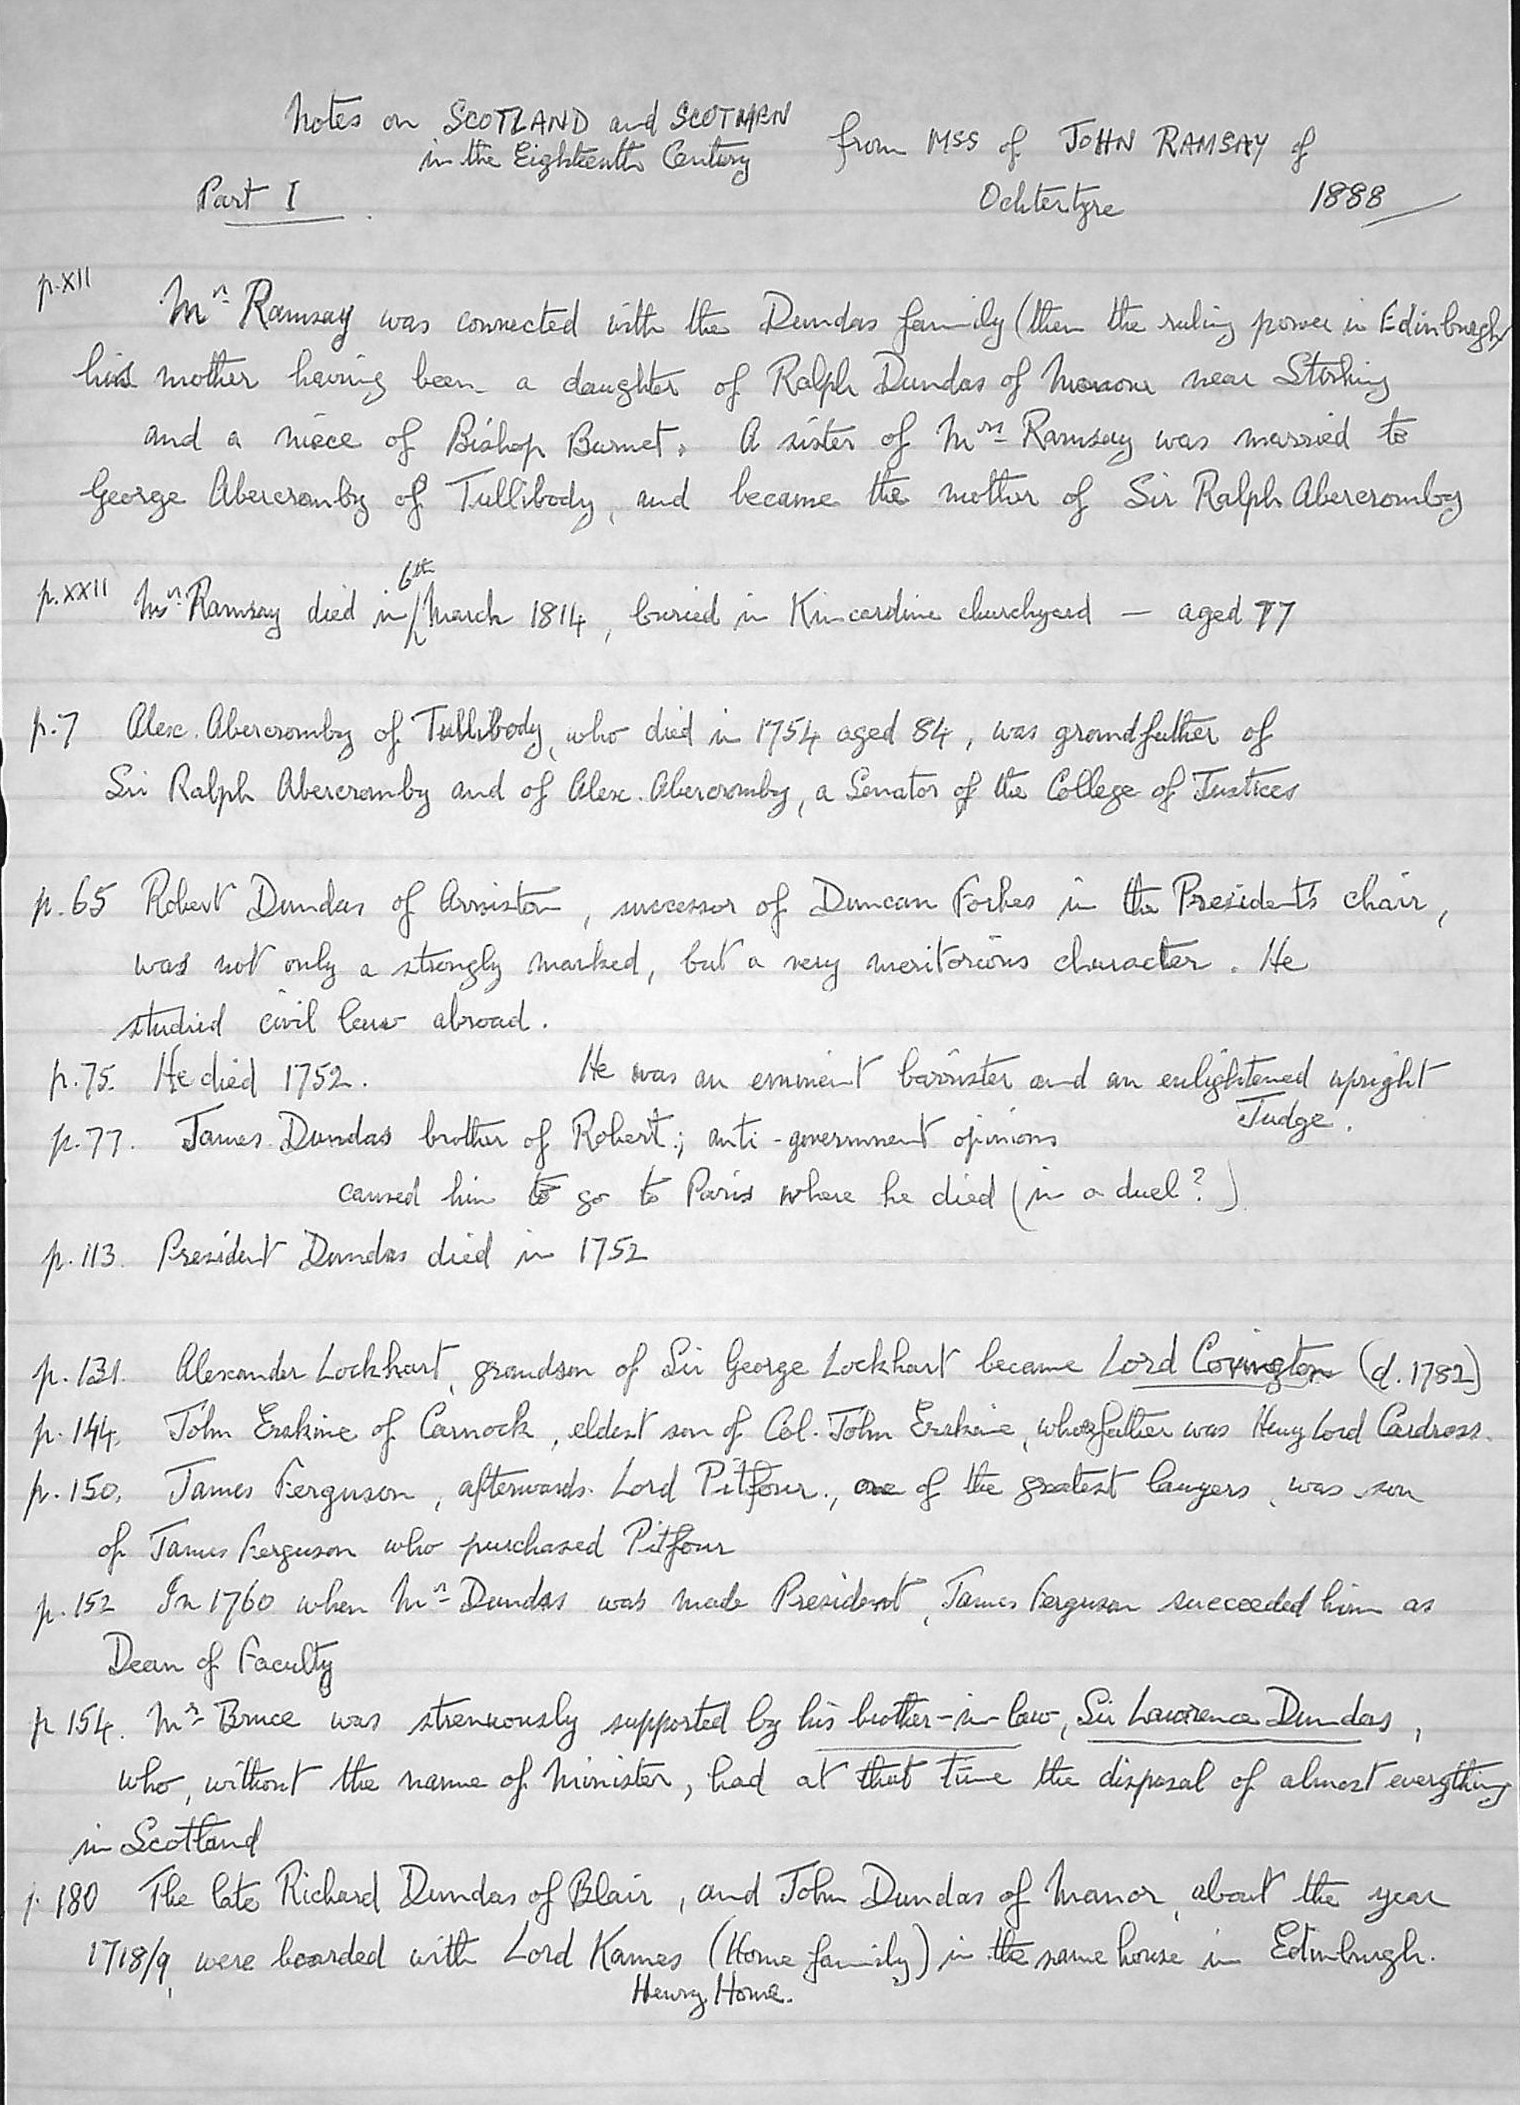 Notes on SCOTLAND and SCOTMEN from MSS of JOHN RAMSAY of
in the Eighteenth Century
Part I Ochtertyre 1888
p.XII Mr Ramsay was connected with the Dundas family (then the ruling power in Edinburgh)
his mother having been a daughter of Ralph Dundas of Manour near Stirling
and a niece of Bishop Burnet. A sister of Mrs Ramsay was married to
George Abercromby of Tullibody, and became the mother of Sir Ralph Abercromby
6th
p.XXII Mr Ramsay died in March 1814, buried in Kincardine churchyard — aged 77
p.7 Alex. Abercromby of Tullibody, who died in 1754 aged 84, was grandfather of
Sir Ralph Abercromby and of Alex. Abercromby, a Senator of the College of Justices
p.65 Robert Dundas of Arniston, successor of Duncan Forbes in the President's chair,
was not only a strongly marked, but a very meritorious character. He
studied civil law abroad.
p.75. He died 1752. He was an eminent barrister and an enlightened upright
Judge.
p.77. James Dundas brother of Robert; anti-government opinions
caused him to go to Paris where he died (in a duel?)
p.113. President Dundas died in 1752
p.131. Alexander Lockhart, grandson of Sir George Lockhart became Lord Covington (d.1782)
p.144. John Erskine of Carnock, eldest son of Col. John Erskine, whose father was Henry Lord Cardross.
p.150. James Ferguson, afterwards Lord Pitfour., one of the greatest lawyers, was son
of James Ferguson who purchased Pitfour
p.152 In 1760 when Mr Dundas was made President, James Ferguson succeeded him as
Dean of Faculty
p 154. Mr Bruce was strenuously supported by his brother-in-law, Sir Lawrence Dundas,
who, without the name of Minister, had at that time the disposal of almost everything
in Scotland
p.180 The late Richard Dundas of Blair, and John Dundas of Manor, about the year
1718/9, were boarded with Lord Kames (Home family) in the same house in Edinburgh.
Henry Home.